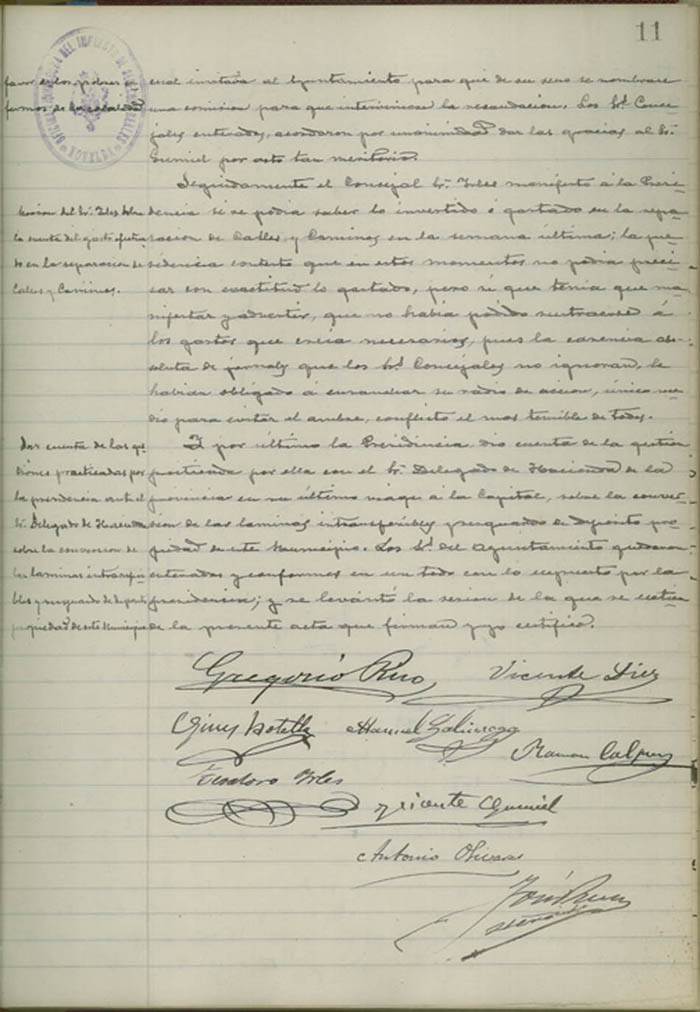 11
favor de los pobres en-
fermos de la localidad
cual invitava al Ayuntamiento para que de su seno se nombrase
una comision para que interviniese la recaudacion. Los Srs. Conce-
jales enterados, acordaron por unanimidad dar las gracias al Sr.
Gumiel por acto tan meritorio.
Seguidamente el Consejal Sr. Irles manifestó á la Presi-
del Sr. Irles sobre
la cuenta del gasto efectua-
do en la reparacion de
Calles y Caminos.
dencia si se podia saber lo invertido ó gastado en la repa-
racion de Calles y Caminos en la semana última; la pre-
sidencia contestó que en estos momentos no podia preci-
sar con exactitud lo gastado, pero si que tenia que ma-
nifestar y advertir, que no habia podido sustraerse á
los gastos que creia necesarios, pues la carencia ab-
soluta de jornales que los Srs. Concejales no ignoran, le
habian obligado á ensanchar su radio de accion, único me-
dio para evitar el ambre, conflicto el mas temible de todos.
Dar cuenta de las ges-
tiones practicadas por
la presidencia ante el
Sr. Delegado de Hacienda
sobre la conversion de
las laminas intransferi-
bles y resguardo de deposito
propiedad de este Municipio
Y por último la Presidencia dio cuenta de la gestion
por ella con el Sr. Delegado de Hacienda de la
provincia en su último viage á la Capital, sobre la conver-
sion de las laminas intransferibles y resguardos de deposito pro-
piedad de este Municipio. Los Srs. del Ayuntamiento quedaron
enterados y conformes en un todo con lo expuesto por la
presidencia; y se levantó la sesion de la que se extien-
de la presente acta que firman y yo certifico.
Gregorio Rico Vicente Diez
Gines Botella Manuel Ramon
Teodoro Irles
Vicente Gumiel
Antonio Olivares
José